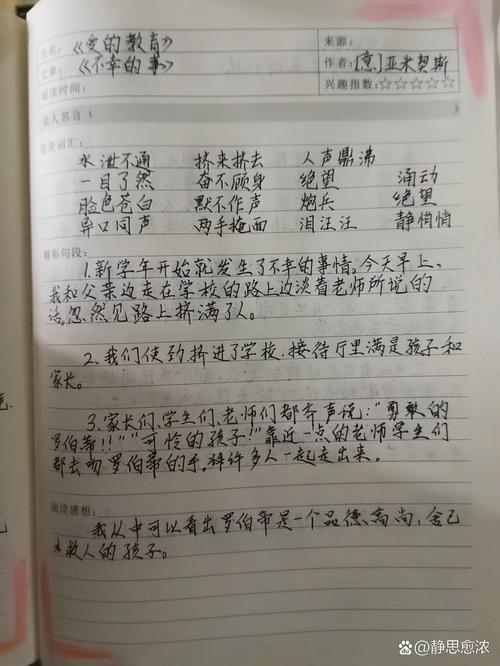 书名：《爱的教育》 来源：
文章：《不幸的事》 作者：[意]亚米契斯
阅读时间： 兴趣指数：☆☆☆☆☆
名人名言（ ）
优美词汇：
水泄不通 挤来挤去 人声鼎沸
一目了然 奋不顾身 绝望 涌动
脸色苍白 默不作声 炮兵 绝望
异口同声 两手掩面 泪汪汪 静悄悄
精彩句段：
1.新学年开始就发生了不幸的事情。今天早上，
我和父亲边走在学校的路上边谈着老师所说的
话。忽然见路上挤满了人。
2.我们使劲挤进了学校，接待厅里满是孩子和
家长。
3.家长们、学生们、老师们都齐声说：“勇敢的
罗伯蒂！！”“可怜的孩子！”靠近一点的老师学生们
都去吻罗伯蒂的手。许多人一起走出来。
阅读感想：
我从中可以看出罗伯蒂是一个品德高尚，舍己
救人的孩子。
静思愈浓